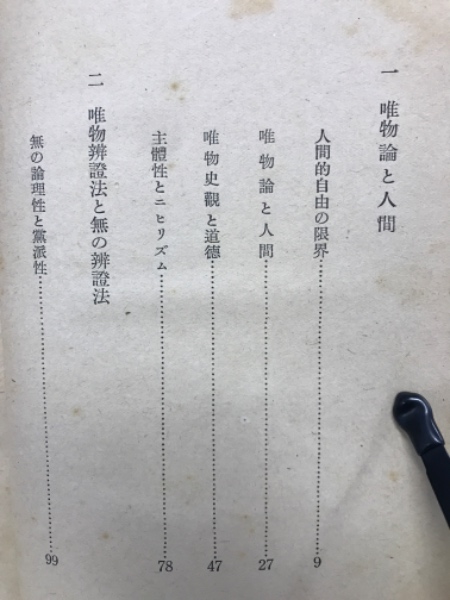 一 唯物論と人間
人間的自由の限界…………9
唯物論と人間…………27
唯物史觀と道德…………47
主體性とニヒリズム…………78
二 唯物辨證法と無の辨證法
無の論理性と黨派性…………99